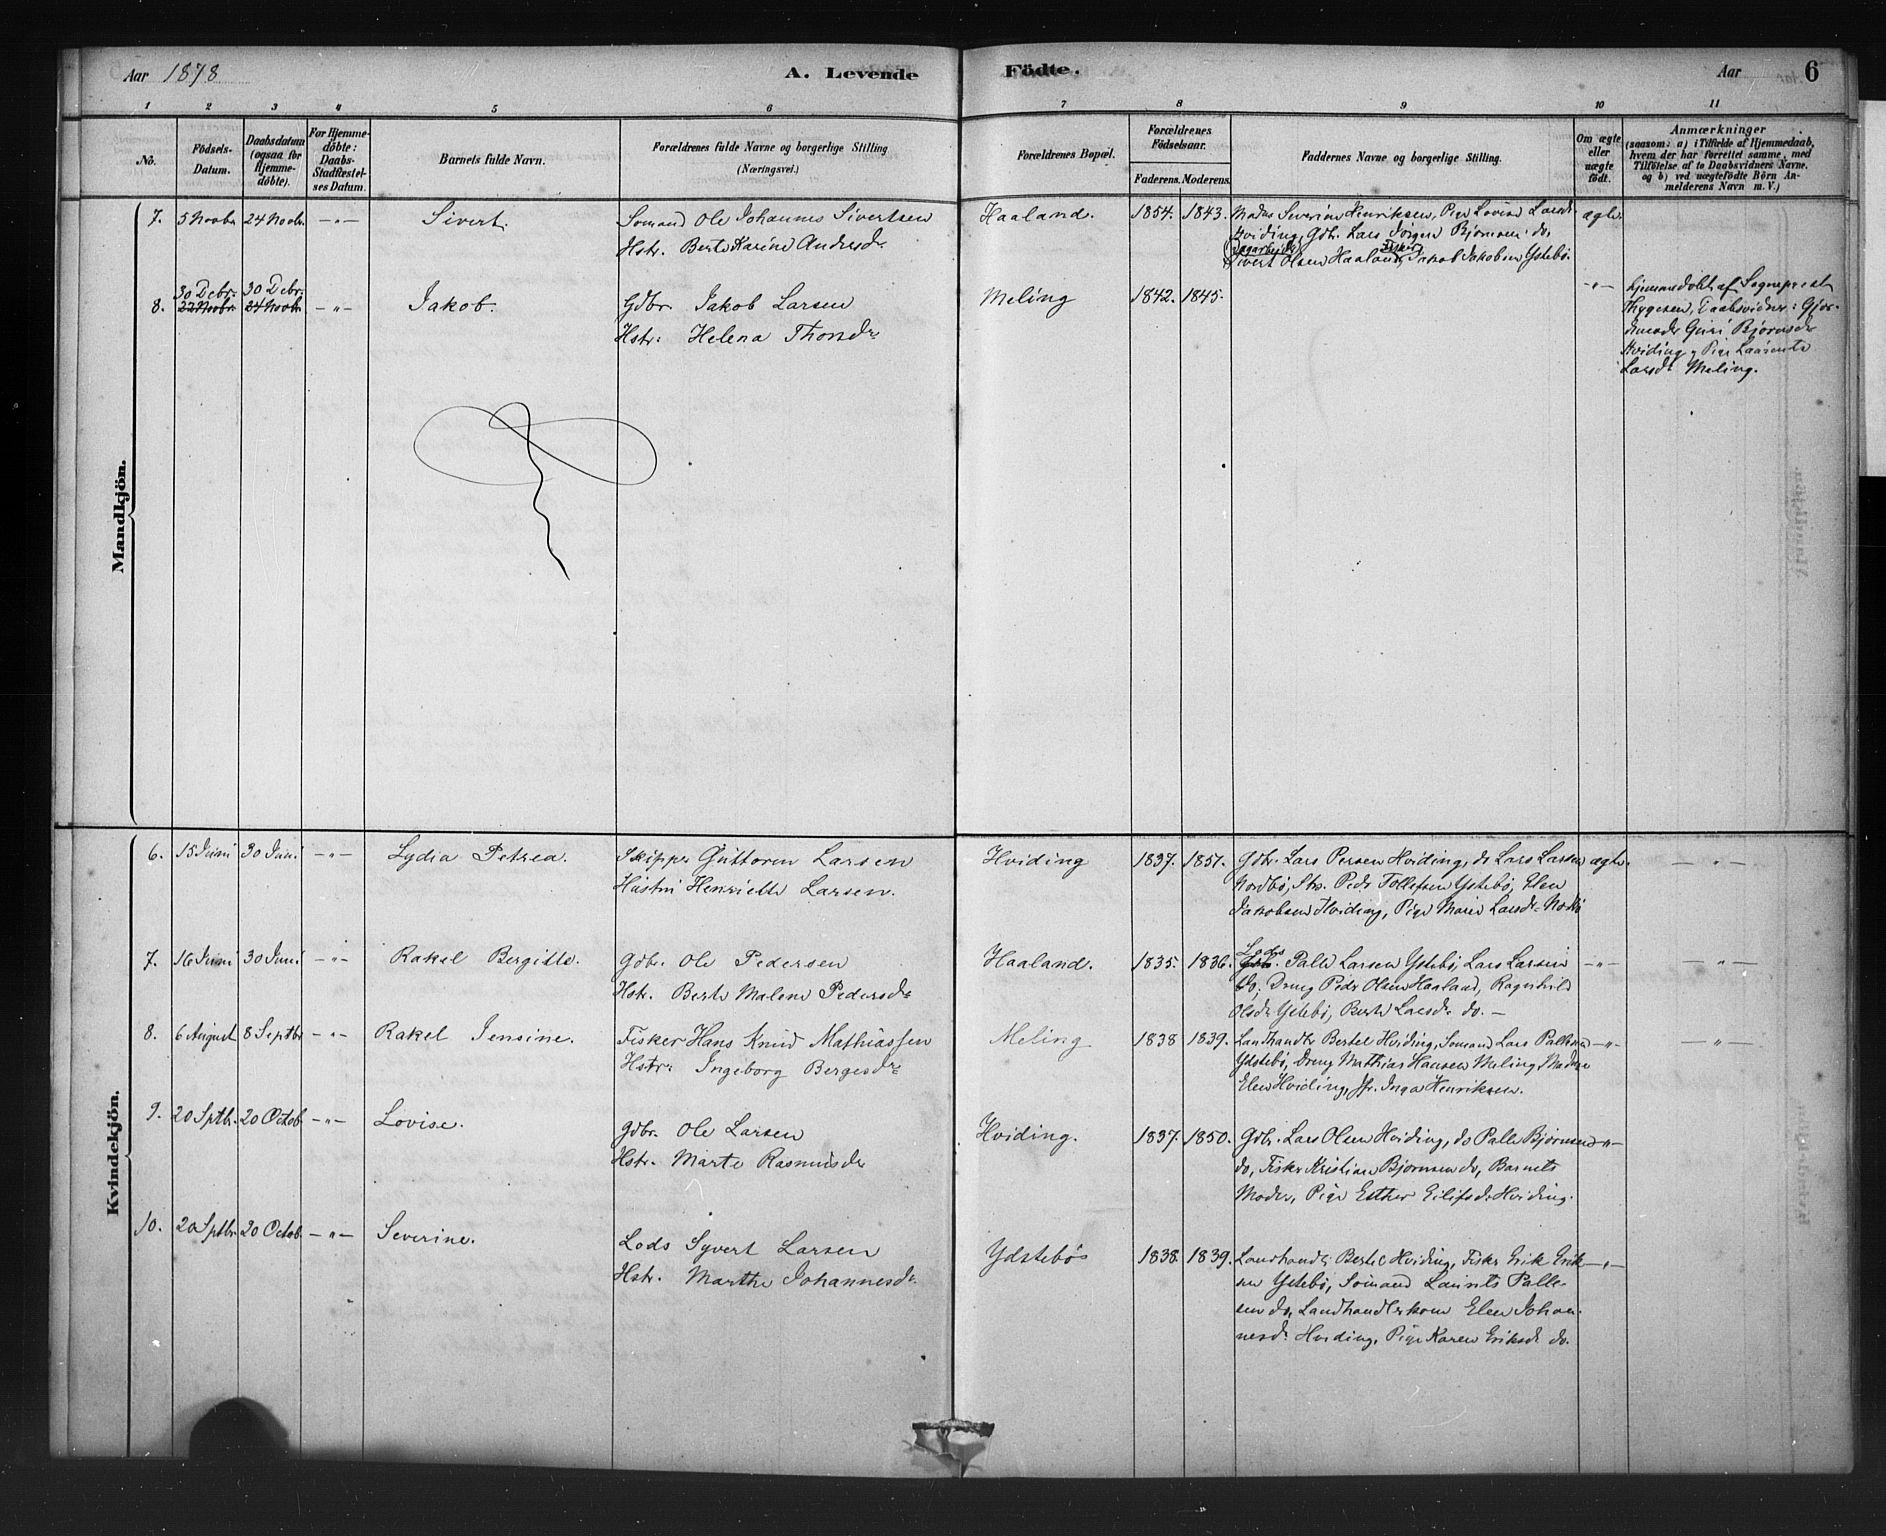 Aar 1878 A. Levende Födte. Aar 6
1 2 3 4 5 6 7 8 9 10 11
No.
Födsels-
Datum.
Daabsdatum
(ogsaa for
Hjemme-
döbte).
For Hjemme-
döbte:
Daabs-
Stadfæstel-
ses Datum.
Barnets fulde Navn.
Forældrenes fulde Navne og borgerlige Stilling
(Næringsvei.)
Forældrenes Bopæl.
Forældrenes
Födselsaar.
Faderens. Moderens.
Faddernes Navne og borgerlige Stilling.
Om ægte
eller
uægte
födt.
Anmærkninger
(saasom: a) i Tilfælde af Hjemmedaab,
hvem der har forrettet samme, med
Tilföielse af to Daabsvidners Navne,
og b) ved uægtefödte Börn An-
melderens Navn m. V.)
Mandkjön.
7. 5 Novbr. 24 Novbr. -"- Sivert.
Sömand Ole Johannes Sivertsen
Hstr. Berte Karine Andersdr
Haaland. 1854. 1843.
Madas Severine Henriksen, Pige Lovise Larsdr
Hviding, Gdbr. Lars Jörgen Bjørnsen do,
Dagarbeider Fisker
Sivert Olsen Haaland, Jakob Jakobsen Ystebö.
ægte.
8. 30 Debr. 30 Debr.
22 Novbr. 24 Novbr. -"- Jakob.
Gdbr. Jakob Larsen
Hstr: Helena Thorsdr
Meling 1842. 1845. -"-
hjemmedöbt af Sogneprest
Thygesen, Daabsvidner: Gjor-
demoder Guri Bjørnsdr
Hviding, Pige Laurente
Larsdr Meling.
Kvindekjön.
6. 15 Juni 30 Juni -"- Lydia Petrea.
Skipper Guttorm Larsen
Hustru Henriette Larsen.
Hviding 1837. 1857.
Gdbr. Lars Persen Hviding, do Lars Larsen
Nordbö, Str. Peder Tollefsen Ystebö, Elen
Jakobsen Hviding, Pige Marie Larsdr Nordbö
ægte. -"-
7. 16 Juni 30 Juni -"- Rakel Bergitte.
Gdbr. Ole Pedersen
Hstr. Berte Malene Pedersdr
Haaland. 1835. 1836.
Lods Palle Larsen Ystebö, Lars Larsen
do, Dreng Peder Olsen Haaland, Ragnhild
Olsdr Ystebö, Berte Larsdr do. -
-"- -"-
8. 6 August 8 Septbr -"- Rakel Jensine.
Fisker Hans Knud Mathiassen
Hstr: Ingeborg Bergesdr
Meling 1838 1839.
Landhandler Bertel Hviding, Sömand Lars Pallesen
Ydstebö, Dreng Mathias Hansen Meling, Madame
Elen Hviding, Jfr. Inga Henriksen.
-"- -"-
9. 20 Sptbr. 20 Octob. -"- Lovise.
Gdbr. Ole Larsen
Hstr. Marte Rasmusdr
Hviding. 1837. 1850.
Gdbr. Lars Olsen Hviding, do Palle Bjørnsen
do, Fisker Kristian Bjørnsen do, Barnets
Moder, Pige Esther Eilifsdr Hviding.
-"-
10. 20 Sptbr. 20 Octob. -"- Severine.
Lods Syvert Larsen
Hstr. Marthe Johannesdr
Ydstebös 1838. 1839.
Landhandler Bertel Hviding, Fisker Erik Erik-
sen Ystebö, Sömand Laurits Palle-
sen do, Landhandlerkone Elen Johan-
nesdr Hviding, Pige Karen Eriksdr do.
-"-